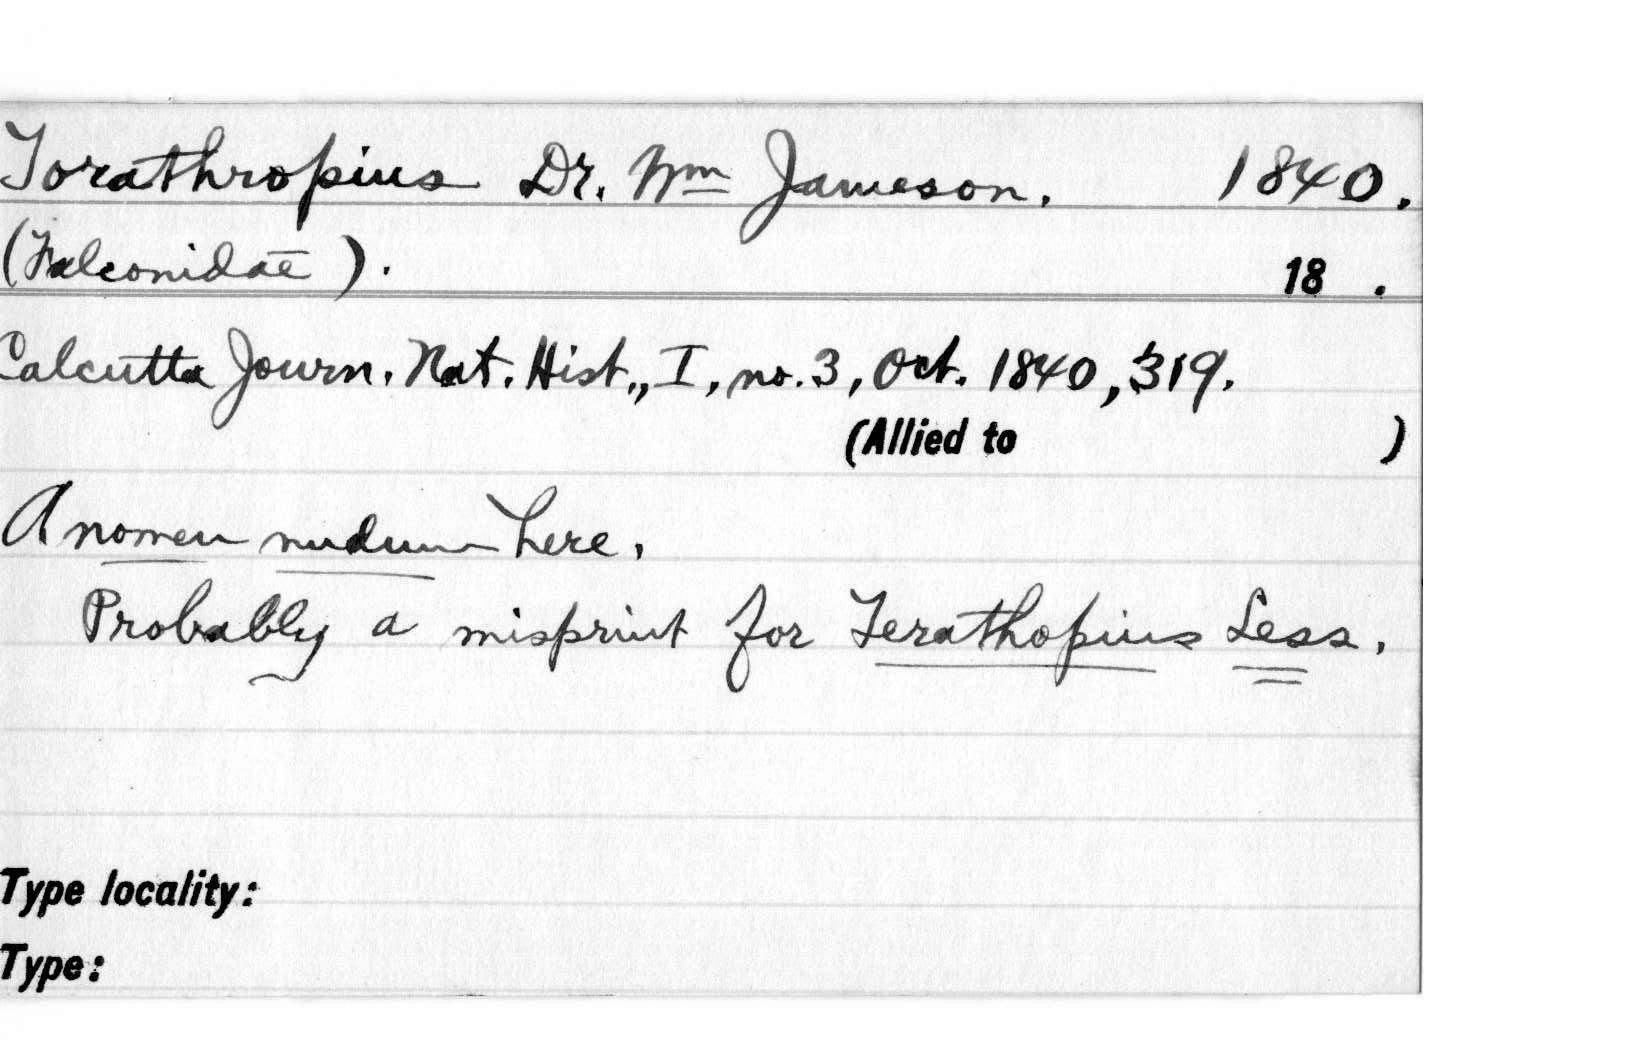 Torathropius Dr. Wm Jameson. 1840.
(Falconidae). 18 .
Calcutta Journ. Nat. Hist., I, no. 3, Oct. 1840, 319.
(Allied to )
A nomen nudum here.
Probably a misprint for Terathopius Less.
Type locality:
Type: